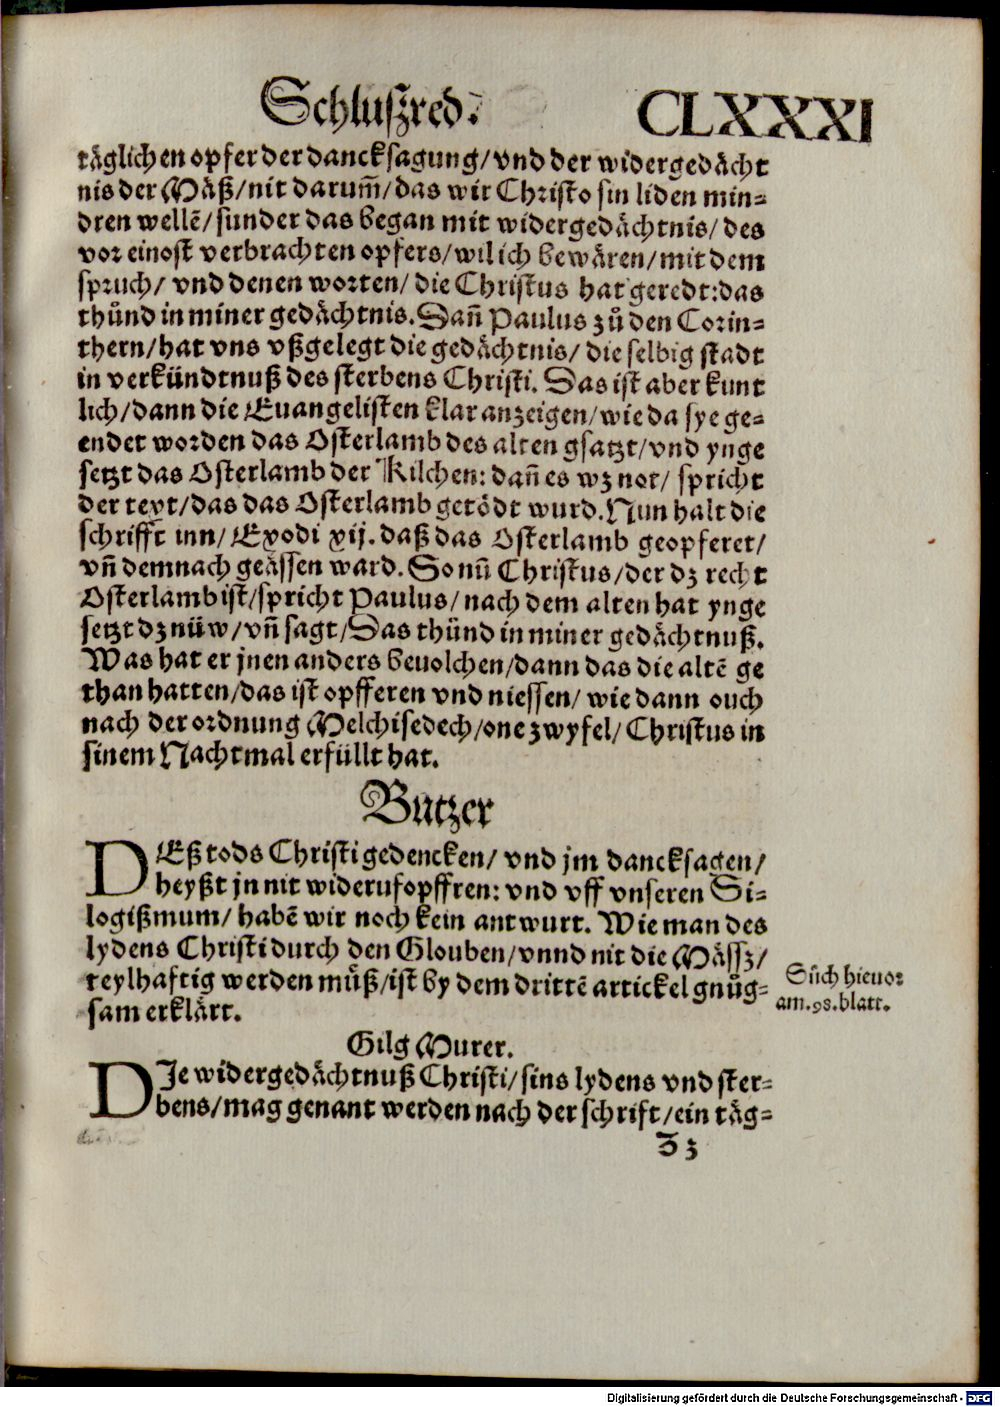 Schluszred. CLXXXI
täglichen opfer der dancksagung/ vnd der widergedächt
nis der Mäß/ nit darum̃/ das wir Christo sin liden min-
dren wellẽ/ sunder das began mit widergedächtnis/ des
vor einost verbrachten opfers/ wil ich bewären/ mit dem
spruch/ vnd denen worten/ die Christus hat geredt: das
thůnd in miner gedächtnis. Dañ Paulus zů den Corin-
thern/ hat vns vßgelegt die gedächtnis/ die selbig stadt
in verkündtnuß des sterbens Christi. Das ist aber kunt
lich/ dann die Euangelisten klar anzeigen/ wie da sye ge-
endet worden das Osterlamb des alten gsatzt/ vnd ynge
setzt das Osterlamb der Kilchen: dañ es wz not/ spricht
der text/ das das Osterlamb getödt wurd. Nun halt die
schrifft inn/ Exodi xij. daß das Osterlamb geopferet/
vñ demnach geässen ward. So nũ Christus/ der dz recht
Osterlamb ist/ spricht Paulus/ nach dem alten hat ynge
setzt dz nüw/ vñ sagt/ Das thůnd in miner gedächtnuß.
Was hat er jnen anders beuolchen/ dann das die altẽ ge
than hatten/ das ist opfferen vnd niessen/ wie dann ouch
nach der ordnung Melchisedech/ one zwyfel/ Christus in
sinem Nachtmal erfüllt hat.
Butzer
DEß tods Christi gedencken/ vnd jm dancksagen/
heyßt jn nit widerufopffren: vnd vff vnseren Si-
logißmum/ habẽ wir noch kein antwurt. Wie man des
lydens Christi durch den Glouben/ vnnd nit die Mässz/
teylhaftig werden můß/ ist by dem drittẽ artickel gnůg-
sam erklärt.
Sůch hieuor
am. 98. blatt.
Gilg Murer.
DJe widergedächtnuß Christi/ sins lydens vnd ster-
bens/ mag genant werden nach der schrift/ ein täg-
Zz
Digitalisierung gefördert durch die Deutsche Forschungsgemeinschaft - DFG